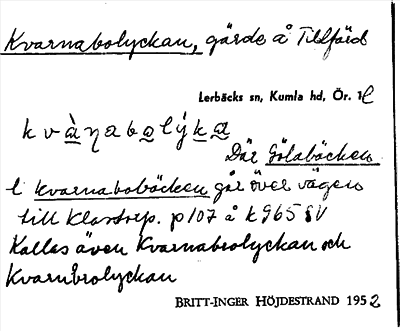 Kvarnabolyckan, gärde å Tillfärd
Lerbäcks sn, Kumla hd, Ör. l
kvàɳabolýka
Där Gölabäcken
l kvarnabobäcken går över vägen
till Klastorp. p107 å k965 SV
Kallas även Kvarnabrolyckan och
Kvarnbrolyckan
BRITT-INGER HÖJDESTRAND 1952